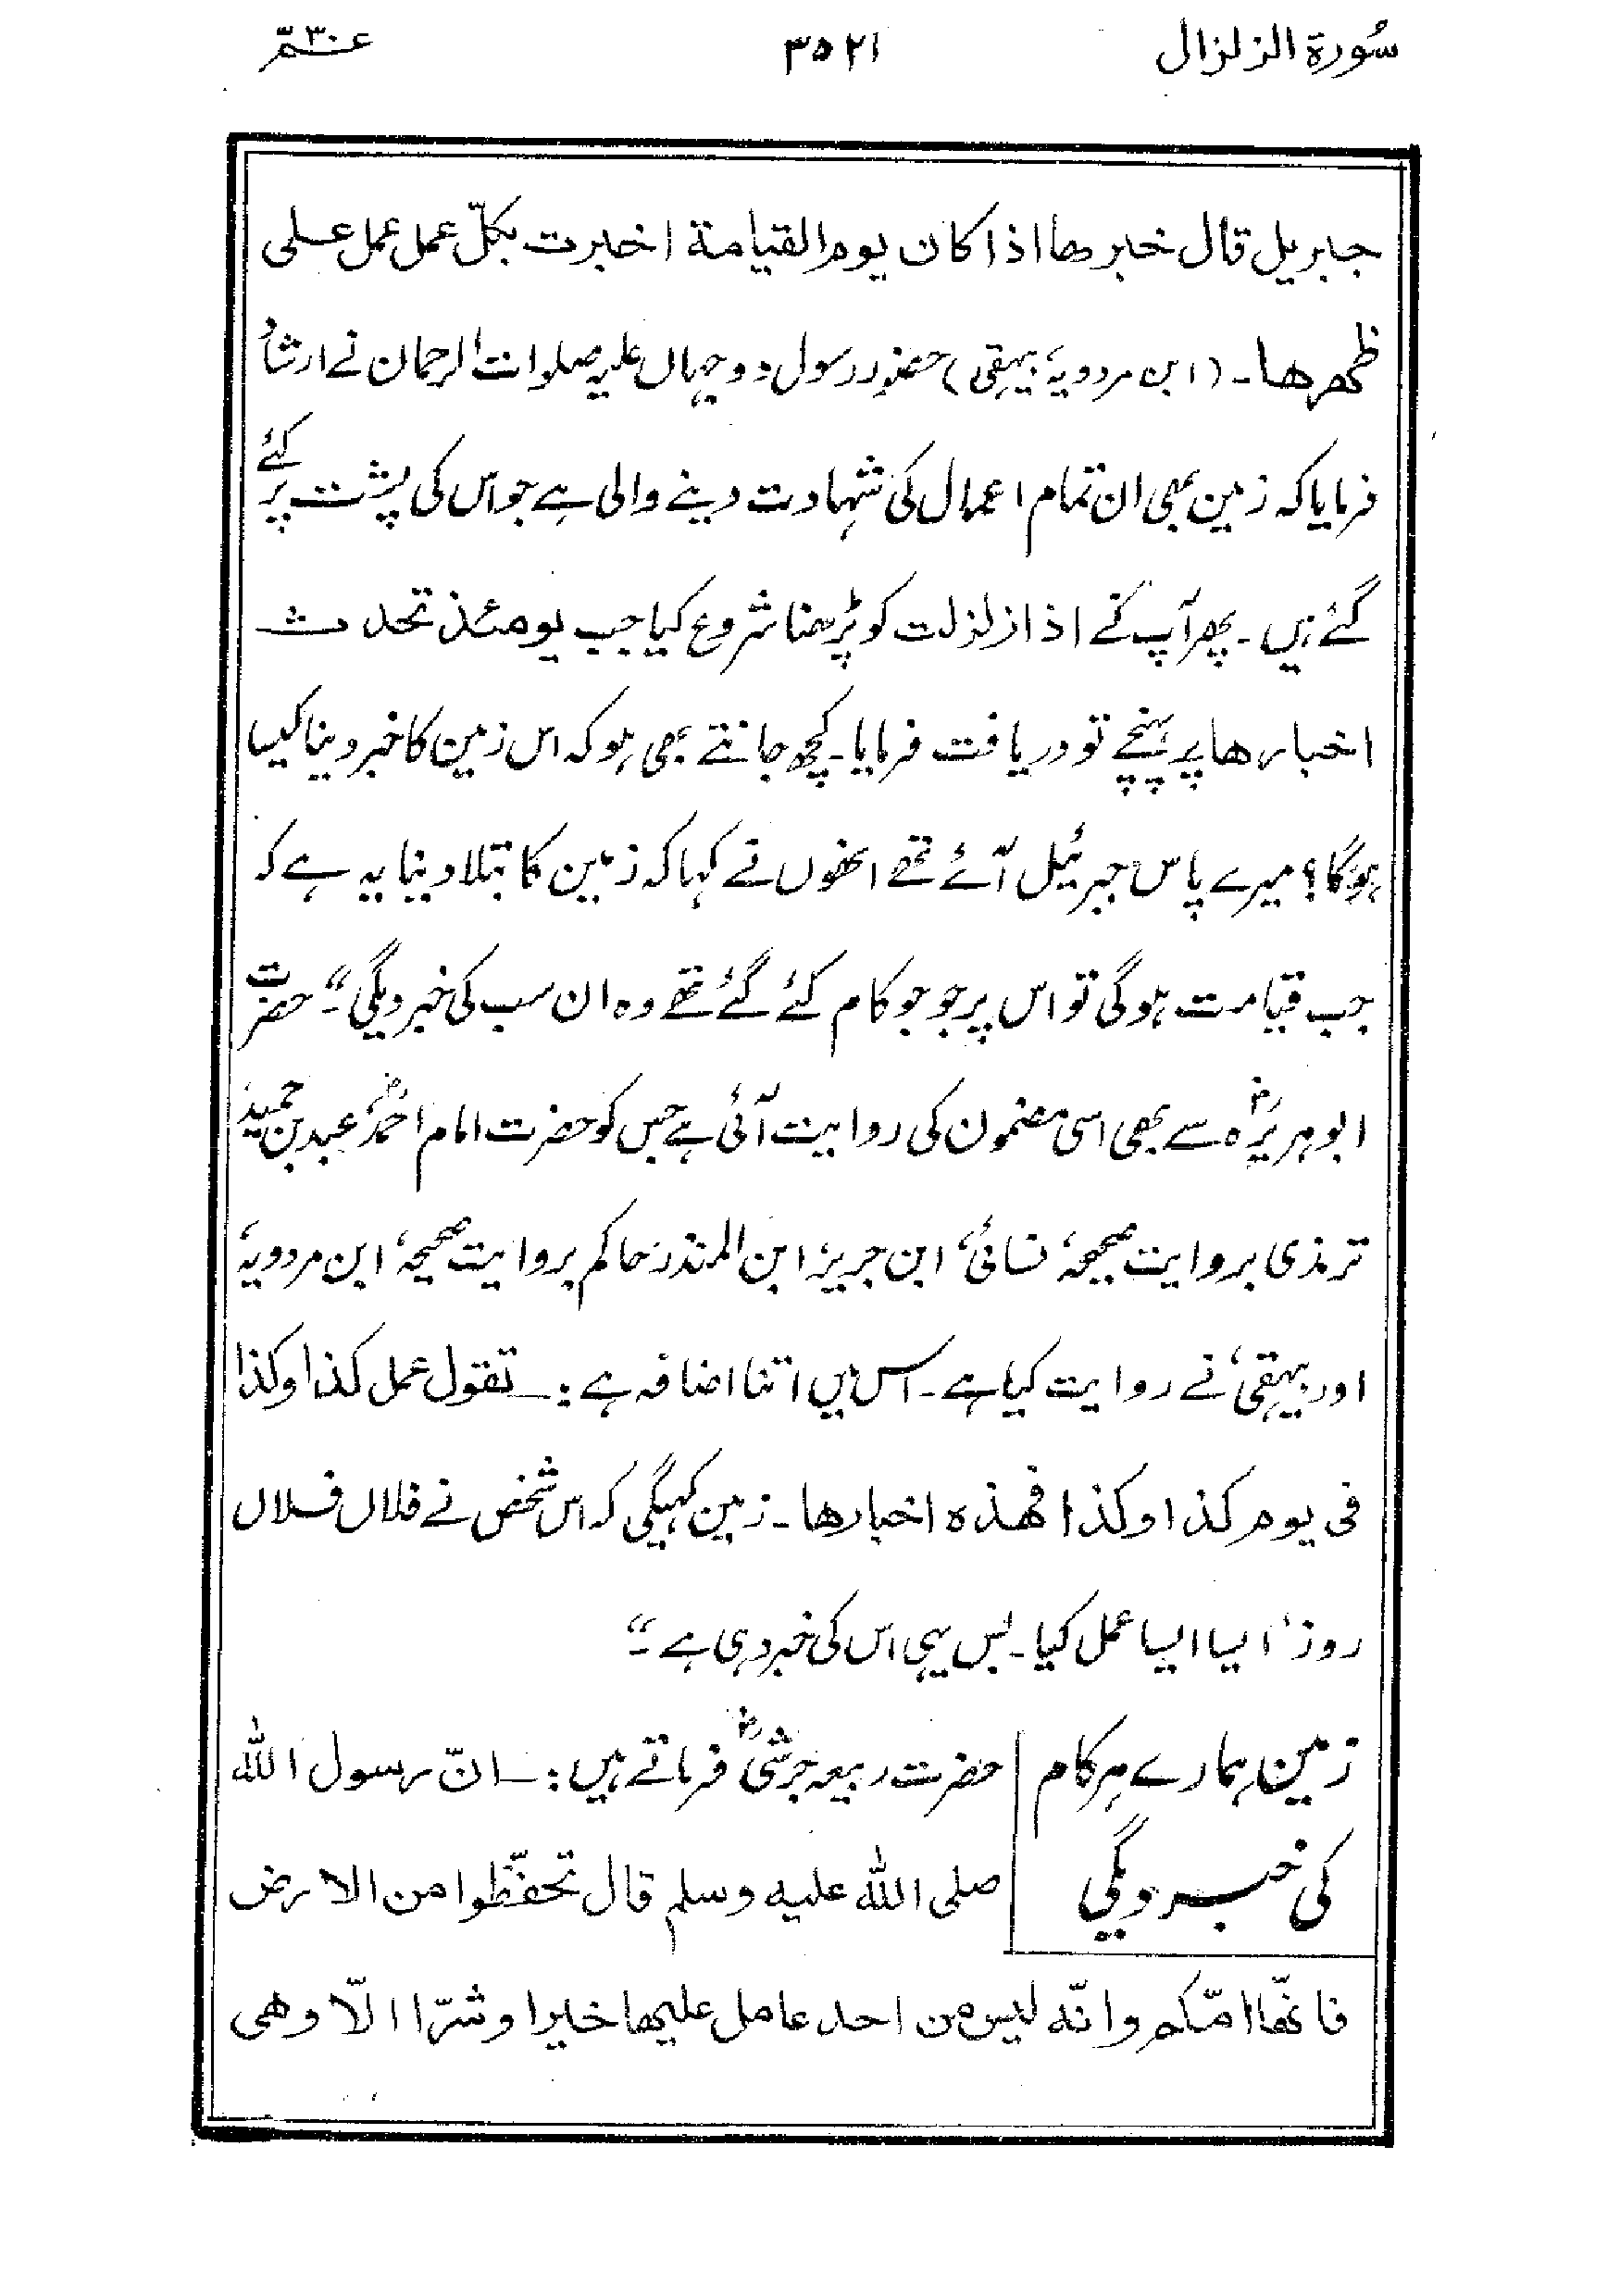 سُورۃ الزلزال ۳۵۲۱ عمّ ۳۰
جبریل قال خبرھا اذا کان یوم القیامۃ اخبرت بکلّ عمل عمل علی
ظھرھا۔ (ابن مردویہؒ بیہقی) حضور رسول دوجہاں علیہ صلوات الرحمان نے ارشاد
فرمایا کہ زمین بھی ان تمام اعمال کی شہادت دینے والی ہے جو اس کی پشت پر کئے
گئے ہیں۔ پھر آپ نے اذا زلزلت کو پڑھنا شروع کیا جب یومئذ تحدث
اخبارھا پر پہنچے تو دریافت فرمایا۔ کچھ جانتے بھی ہو کہ اس زمین کا خبر دینا کیسا
ہوگا؟ میرے پاس جبرئیل آئے تھے انھوں نے کہا کہ زمین کا بتلا دینا یہ ہے کہ
جب قیامت ہوگی تو اس پر جو جو کام کئے گئے تھے وہ ان سب کی خبر دیگی"۔ حضرت
ابوہریرہؓ سے بھی اسی مضمون کی روایت آئی ہے جس کو حضرت امام احمدؒ، عبد بن حمید،
ترمذی بروایت صحیحہ، نسائی، ابن جریر، ابن المنذر، حاکم بروایت صحیحہ، ابن مردویہ،
اور بیہقی نے روایت کیا ہے۔ اس میں اتنا اضافہ ہے:۔ تقول عمل کذا وکذا
فی یوم کذا وکذا فھذہ اخبارھا۔ زمین کہیگی کہ اس شخص نے فلاں فلاں
روز، ایسا ایسا عمل کیا۔ بس یہی اس کی خبر دہی ہے"۔
زمین ہمارے ہر کام
کی خبر دیگی
حضرت ربیعہ جرشیؓ فرماتے ہیں:۔ انّ رسول اللہ
صلی اللہ علیہ وسلم قال تحفّظوا من الارض
فانھّا امّکم وانّہ لیس من احد عامل علیھا خیرا وشرّا الّا وھی